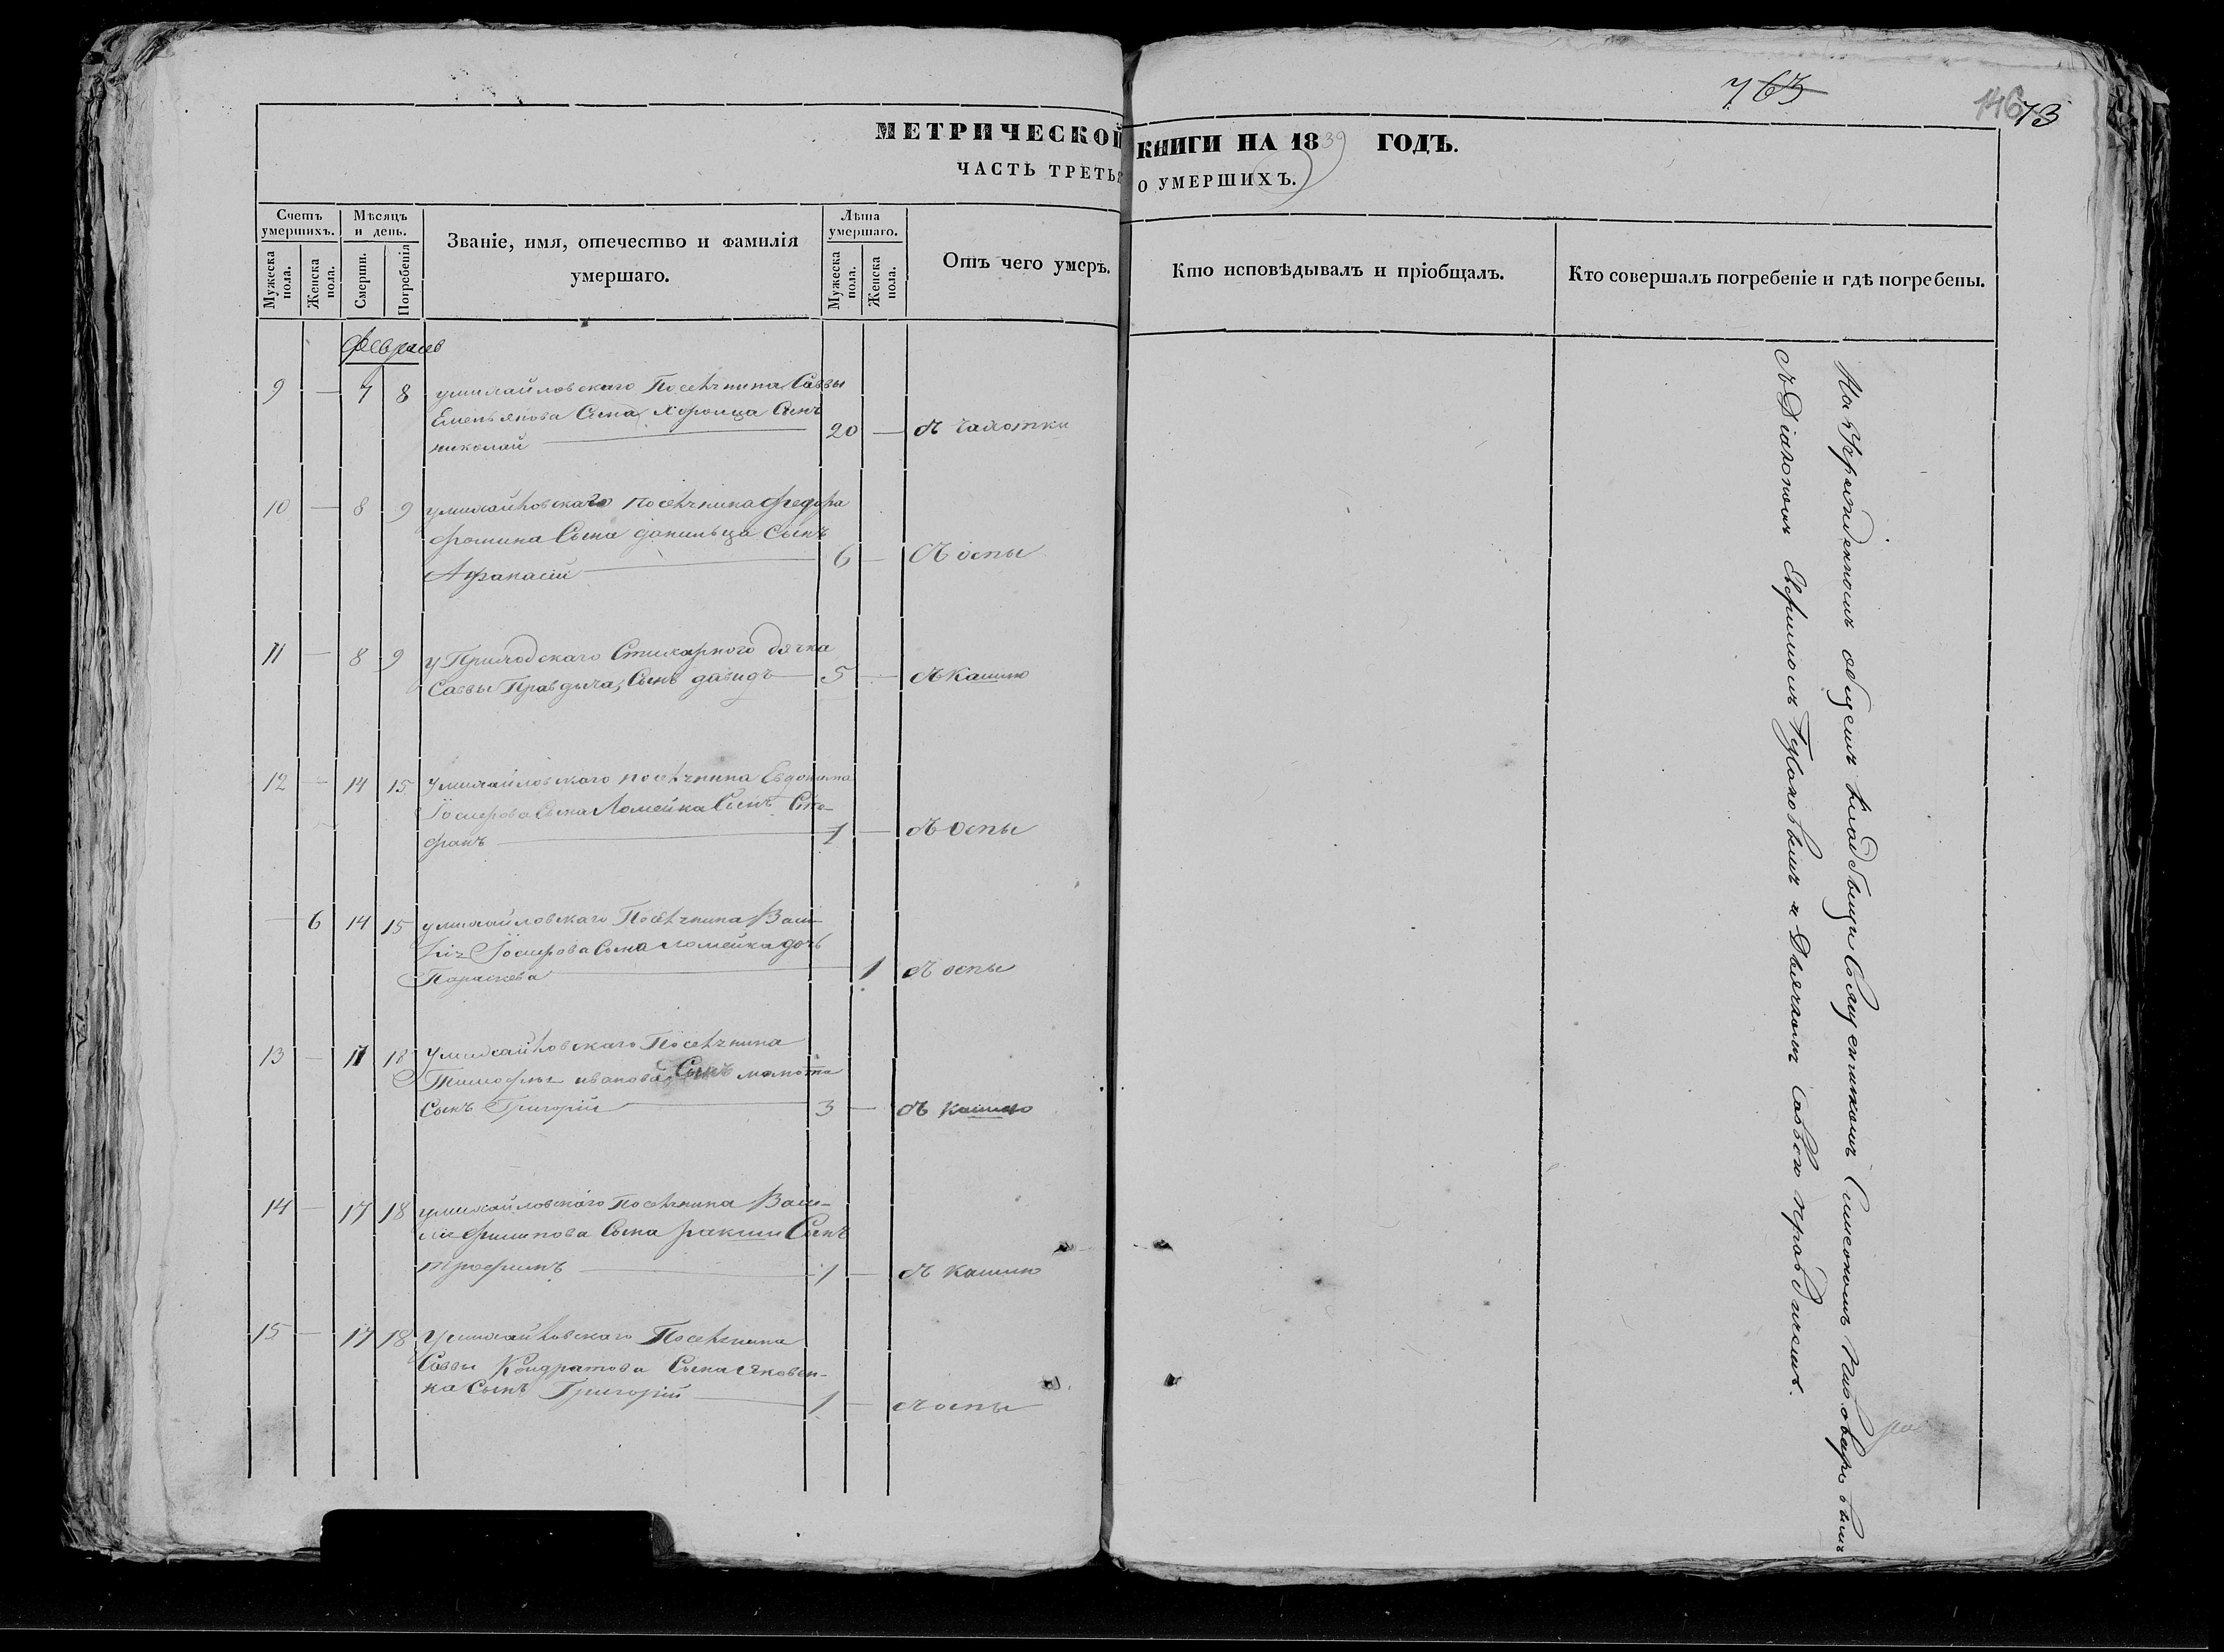 763
146
73
МЕТРИЧЕСКОЙ КНИГИ НА 1839 ГОДЪ.
ЧАСТЬ ТРЕТЬЯ О УМЕРШИХЪ.
Счетъ умершихъ.
Мужеска пола.
Женска пола.
Мѣсяцъ и день.
Смерти.
Погребенія
Званіе, имя, отечество и фамилія умершаго.
Лѣта умершаго.
Мужеска пола.
Женска пола.
Отъ чего умеръ.
Кто исповѣдывалъ и пріобщалъ.
Кто совершалъ погребеніе и гдѣ погребены.
Февраль
9 — 7 8 умихайловскаго Посѣтнина Саввы
Емельянова Сына Сынъ
николай — 20 — Отъ чахотки
10 — 8 9 умихайловскаго посѣтнина федора
фомина Сына данильца Сынъ
Афанасій — 6 — Отъ оспы
11 — 8 9 у Приходскаго Стихарного дячка
Саввы Правдича, Сынъ давидъ — 5 — Отъ Кашлю
12 — 14 15 умихайловскаго посѣтнина Евдокима
Іосифова Сына Ломейка Сынъ Сте-
фанъ — 1 — Отъ Оспы
— 6 14 15 умихайловскаго Посѣтнина Васи-
лія Іосифова Сына ломейка дочь
Параскева — 1 Отъ оспы
13 — 17 18 умихайловскаго Посѣтнина
Тимофея иванова Сына
Сынъ Григорій — 3 — Отъ Кашлю
14 — 17 18 умихайловскаго Посѣтнина Васи-
лія филипова Сына ракши Сынъ
трофимъ — 1 — Отъ Кашлю
15 — 17 18 умихайловскаго Посѣтнина
Саввы Кондратова Сына яковен-
ка Сынъ Григорій — 1 — Отъ оспы
На Учрежденномъ общемъ кладбищи Священникомъ Симеономъ Пивоваровымъ
съ Діакономъ Ефимомъ и Дьячкомъ Саввою правдичемъ.